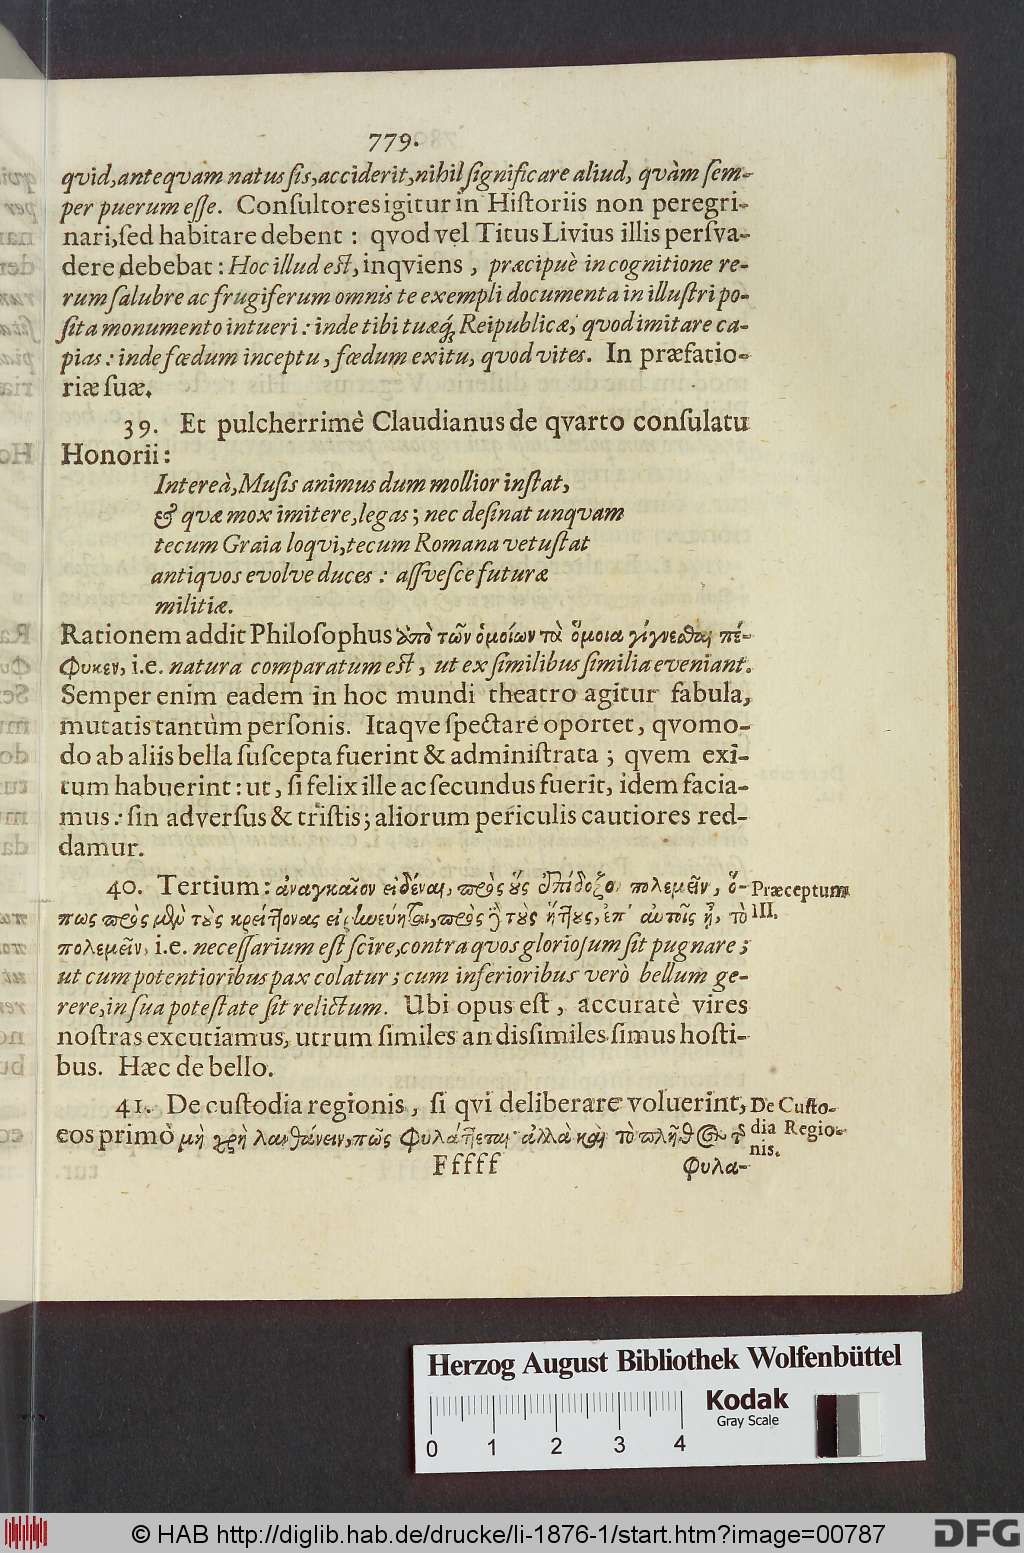 779.
qvid, anteqvam natus sis, acciderit, nihil significare aliud, qvàm sem-
per puerum esse. Consultores igitur in Historiis non peregri-
nari, sed habitare debent : qvod vel Titus Livius illis persva-
dere debebat : Hoc illud est, inqviens, præcipuè in cognitione re-
rum salubre ac frugiferum omnis te exempli documenta in illustri po-
sita monumento intueri : inde tibi tuæq́; Reipublicæ, qvod imitare ca-
pias : inde fœdum inceptu, fœdum exitu, qvod vites. In præfatio-
riæ suæ.
39. Et pulcherrimè Claudianus de qvarto consulatu
Honorii :
Intereà, Musis animus dum mollior instat,
& qvæ mox imitere, legas ; nec desinat unqvam
tecum Graia loqvi, tecum Romana vetustat
antiqvos evolve duces : assvesce futuræ
militiæ.
Rationem addit Philosophus ἀπὸ τῶν ὁμοίων τὰ ὅμοια γίγνεσθαι πέ-
φυκεν, i.e. natura comparatum est, ut ex similibus similia eveniant.
Semper enim eadem in hoc mundi theatro agitur fabula,
mutatis tantùm personis. Itaqve spectare oportet, qvomo-
do ab aliis bella suscepta fuerint & administrata ; qvem exi-
tum habuerint : ut, si felix ille ac secundus fuerit, idem facia-
mus : sin adversus & tristis ; aliorum periculis cautiores red-
damur.
40. Tertium : ἀναγκαῖον εἰδέναι, πρὸς οὓς ἐπίδοξον πολεμεῖν, ὅ-
πως πρὸς μὲν τοὺς κρείττονας εἰρηνεύηται, πρὸς δὲ τοὺς ἥττους, ἐπ' αὐτοῖς ᾖ, τὸ
πολεμεῖν, i.e. necessarium est scire, contra qvos gloriosum sit pugnare ;
ut cum potentioribus pax colatur ; cum inferioribus verò bellum ge-
rere, in sua potestate sit relictum. Ubi opus est, accuratè vires
nostras excutiamus, utrum similes an dissimiles simus hosti-
bus. Hæc de bello.
Præceptum
III.
41. De custodia regionis, si qvi deliberare voluerint,
eos primò μὴ χρὴ λανθάνειν, πῶς φυλάττεται· ἀλλὰ καὶ τὸ πλῆθος τῆς
De Custo-
dia Regio-
nis.
Fffff
φυλα-
Herzog August Bibliothek Wolfenbüttel
Kodak
Gray Scale
0 1 2 3 4
© HAB http://diglib.hab.de/drucke/li-1876-1/start.htm?image=00787
DFG